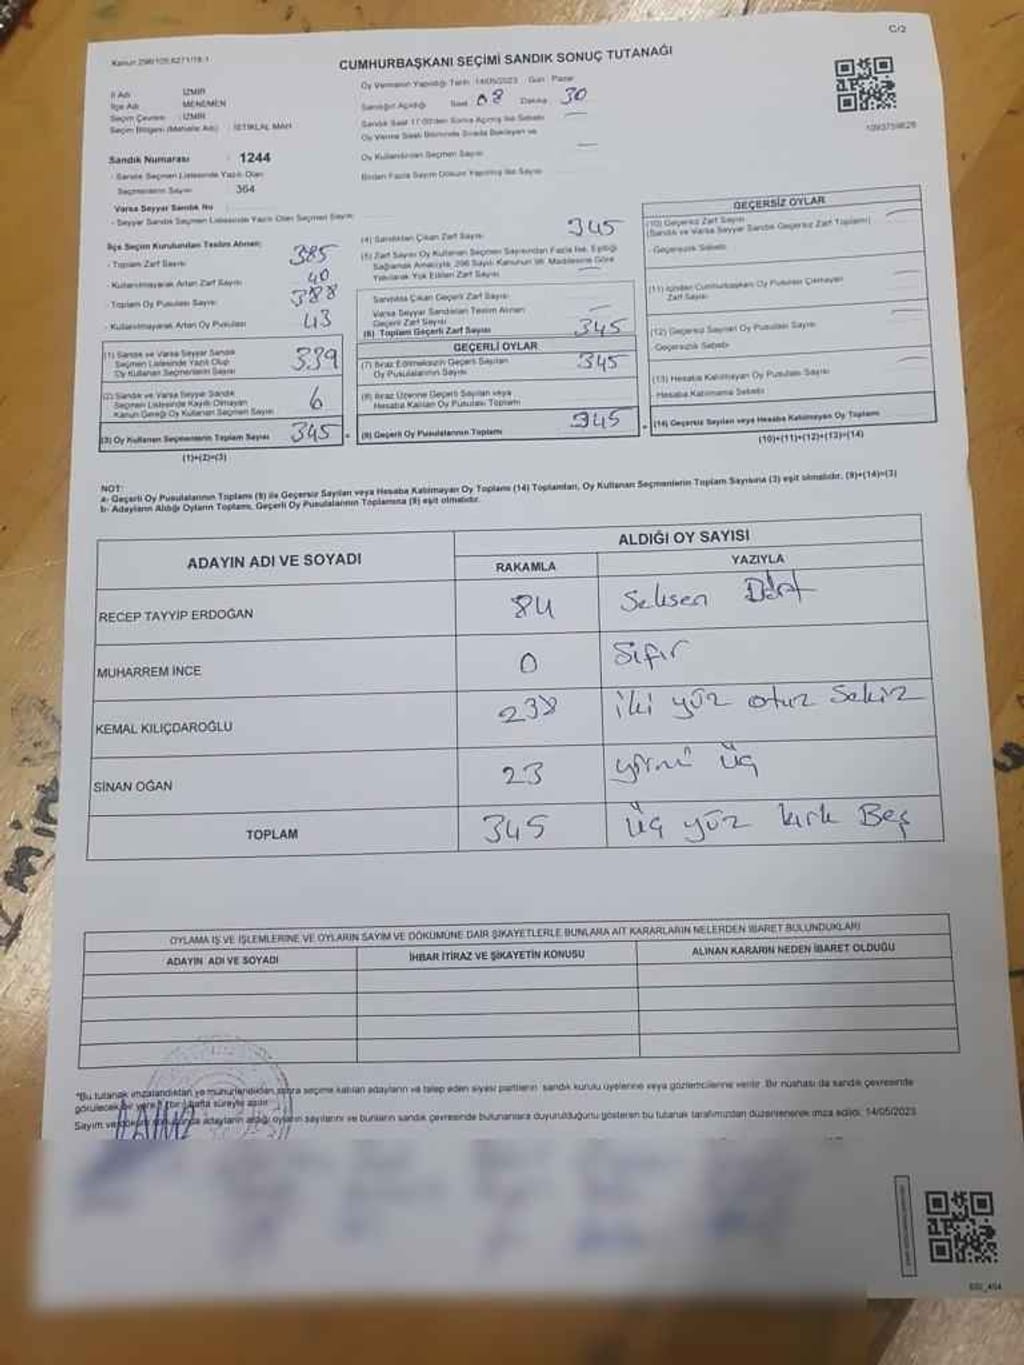 C/2
CUMHURBAŞKANI SEÇİMİ SANDIK SONUÇ TUTANAĞI
İl Adı : İZMİR
İlçe Adı : MENEMEN
Seçim Çevresi : İZMİR
Seçim Bölgesi (Mahalle Adı) : İSTİKLAL MAH
Sandık Numarası : 1244
- Sandık Seçmen Listesinde Yazılı Olan
Seçmenlerin Sayısı 364
Varsa Seyyar Sandık No :
- Seyyar Sandık Seçmen Listesinde Yazılı Olan Seçmen Sayısı
Oy Vermenin Yapıldığı Tarih 14/05/2023 Gün : Pazar
Sandığın Açıldığı Saat 08 Dakika 30
Sandık Saat 17:00'den Sonra Açılmış İse Sebebi
Oy Verme Saati Bitiminde Sırada Bekleyen ve
Oy Kullandırılan Seçmen Sayısı
Birden Fazla Sayım Döküm Yapılmış İse Sayısı
İlçe Seçim Kurulundan Teslim Alınan:
- Toplam Zarf Sayısı 385
- Kullanılmayarak Artan Zarf Sayısı 40
- Toplam Oy Pusulası Sayısı 388
- Kullanılmayarak Artan Oy Pusulası 43
(1) Sandık ve Varsa Seyyar Sandık
Seçmen Listesinde Yazılı Olup
Oy Kullanan Seçmenlerin Sayısı 339
(2) Sandık ve Varsa Seyyar Sandık
Seçmen Listesinde Kayıtlı Olmayan
Kanun Gereği Oy Kullanan Seçmen Sayısı 6
(3) Oy Kullanan Seçmenlerin Toplam Sayısı 345
(1)+(2)=(3)
(4) Sandıktan Çıkan Zarf Sayısı 345
(5) Zarf Sayısı Oy Kullanan Seçmen Sayısından Fazla İse, Eşitliği
Sağlamak Amacıyla, 298 Sayılı Kanunun 98. Maddesine Göre
Yakılarak Yok Edilen Zarf Sayısı
Sandıkta Çıkan Geçerli Zarf Sayısı
Varsa Seyyar Sandıktan Teslim Alınan
Geçerli Zarf Sayısı
(6) Toplam Geçerli Zarf Sayısı 345
GEÇERLİ OYLAR
(7) İtiraz Edilmeksizin Geçerli Sayılan
Oy Pusulalarının Sayısı 345
(8) İtiraz Üzerine Geçerli Sayılan veya
Hesaba Katılan Oy Pusulası Toplamı
(9) Geçerli Oy Pusulalarının Toplamı 345
GEÇERSİZ OYLAR
(10) Geçersiz Zarf Sayısı
(Sandık ve Varsa Seyyar Sandık Geçersiz Zarf Toplamı)
-Geçersizlik Sebebi:
(11) İçinden Cumhurbaşkanı Oy Pusulası Çıkmayan
Zarf Sayısı
(12) Geçersiz Sayılan Oy Pusulası Sayısı
-Geçersizlik Sebebi:
(13) Hesaba Katılmayan Oy Pusulası Sayısı
-Hesaba Katılmama Sebebi:
(14) Geçersiz Sayılan veya Hesaba Katılmayan Oy Toplamı
(10)+(11)+(12)+(13)=(14)
NOT:
a- Geçerli Oy Pusulalarının Toplamı (9) ile Geçersiz Sayılan veya Hesaba Katılmayan Oy Toplamı (14) Toplamları, Oy Kullanan Seçmenlerin Toplam Sayısına (3) eşit olmalıdır. (9)+(14)=(3)
b- Adayların Aldığı Oyların Toplamı, Geçerli Oy Pusulalarının Toplamına (9) eşit olmalıdır.
ADAYIN ADI VE SOYADI ALDIĞI OY SAYISI
RAKAMLA YAZIYLA
RECEP TAYYİP ERDOĞAN 84 Seksen Dört
MUHARREM İNCE 0 Sıfır
KEMAL KILIÇDAROĞLU 238 iki yüz otuz sekiz
SİNAN OĞAN 23 yirmi üç
TOPLAM 345 üç yüz kırk Beş
OYLAMA İŞ VE İŞLEMLERİNE VE OYLARIN SAYIM VE DÖKÜMÜNE DAİR ŞİKAYETLERLE BUNLARA AİT KARARLARIN NELERDEN İBARET BULUNDUKLARI
ADAYIN ADI VE SOYADI İHBAR İTİRAZ VE ŞİKAYETİN KONUSU ALINAN KARARIN NEDEN İBARET OLDUĞU
*Bu tutanak imzalandıktan ve mühürlendikten sonra seçime katılan adayların ve talep eden siyasi partilerin sandık kurulu üyelerine veya gözlemcilerine verilir. Bir nüshası da sandık çevresinde
görülecek bir yere bir hafta süreyle asılır.
Sayım ve döküm sonucunda adayların aldığı oyların sayılarını ve bunların sandık çevresinde bulunanlara duyurulduğunu gösteren bu tutanak tarafımızdan düzenlenerek imza edildi. 14/05/2023